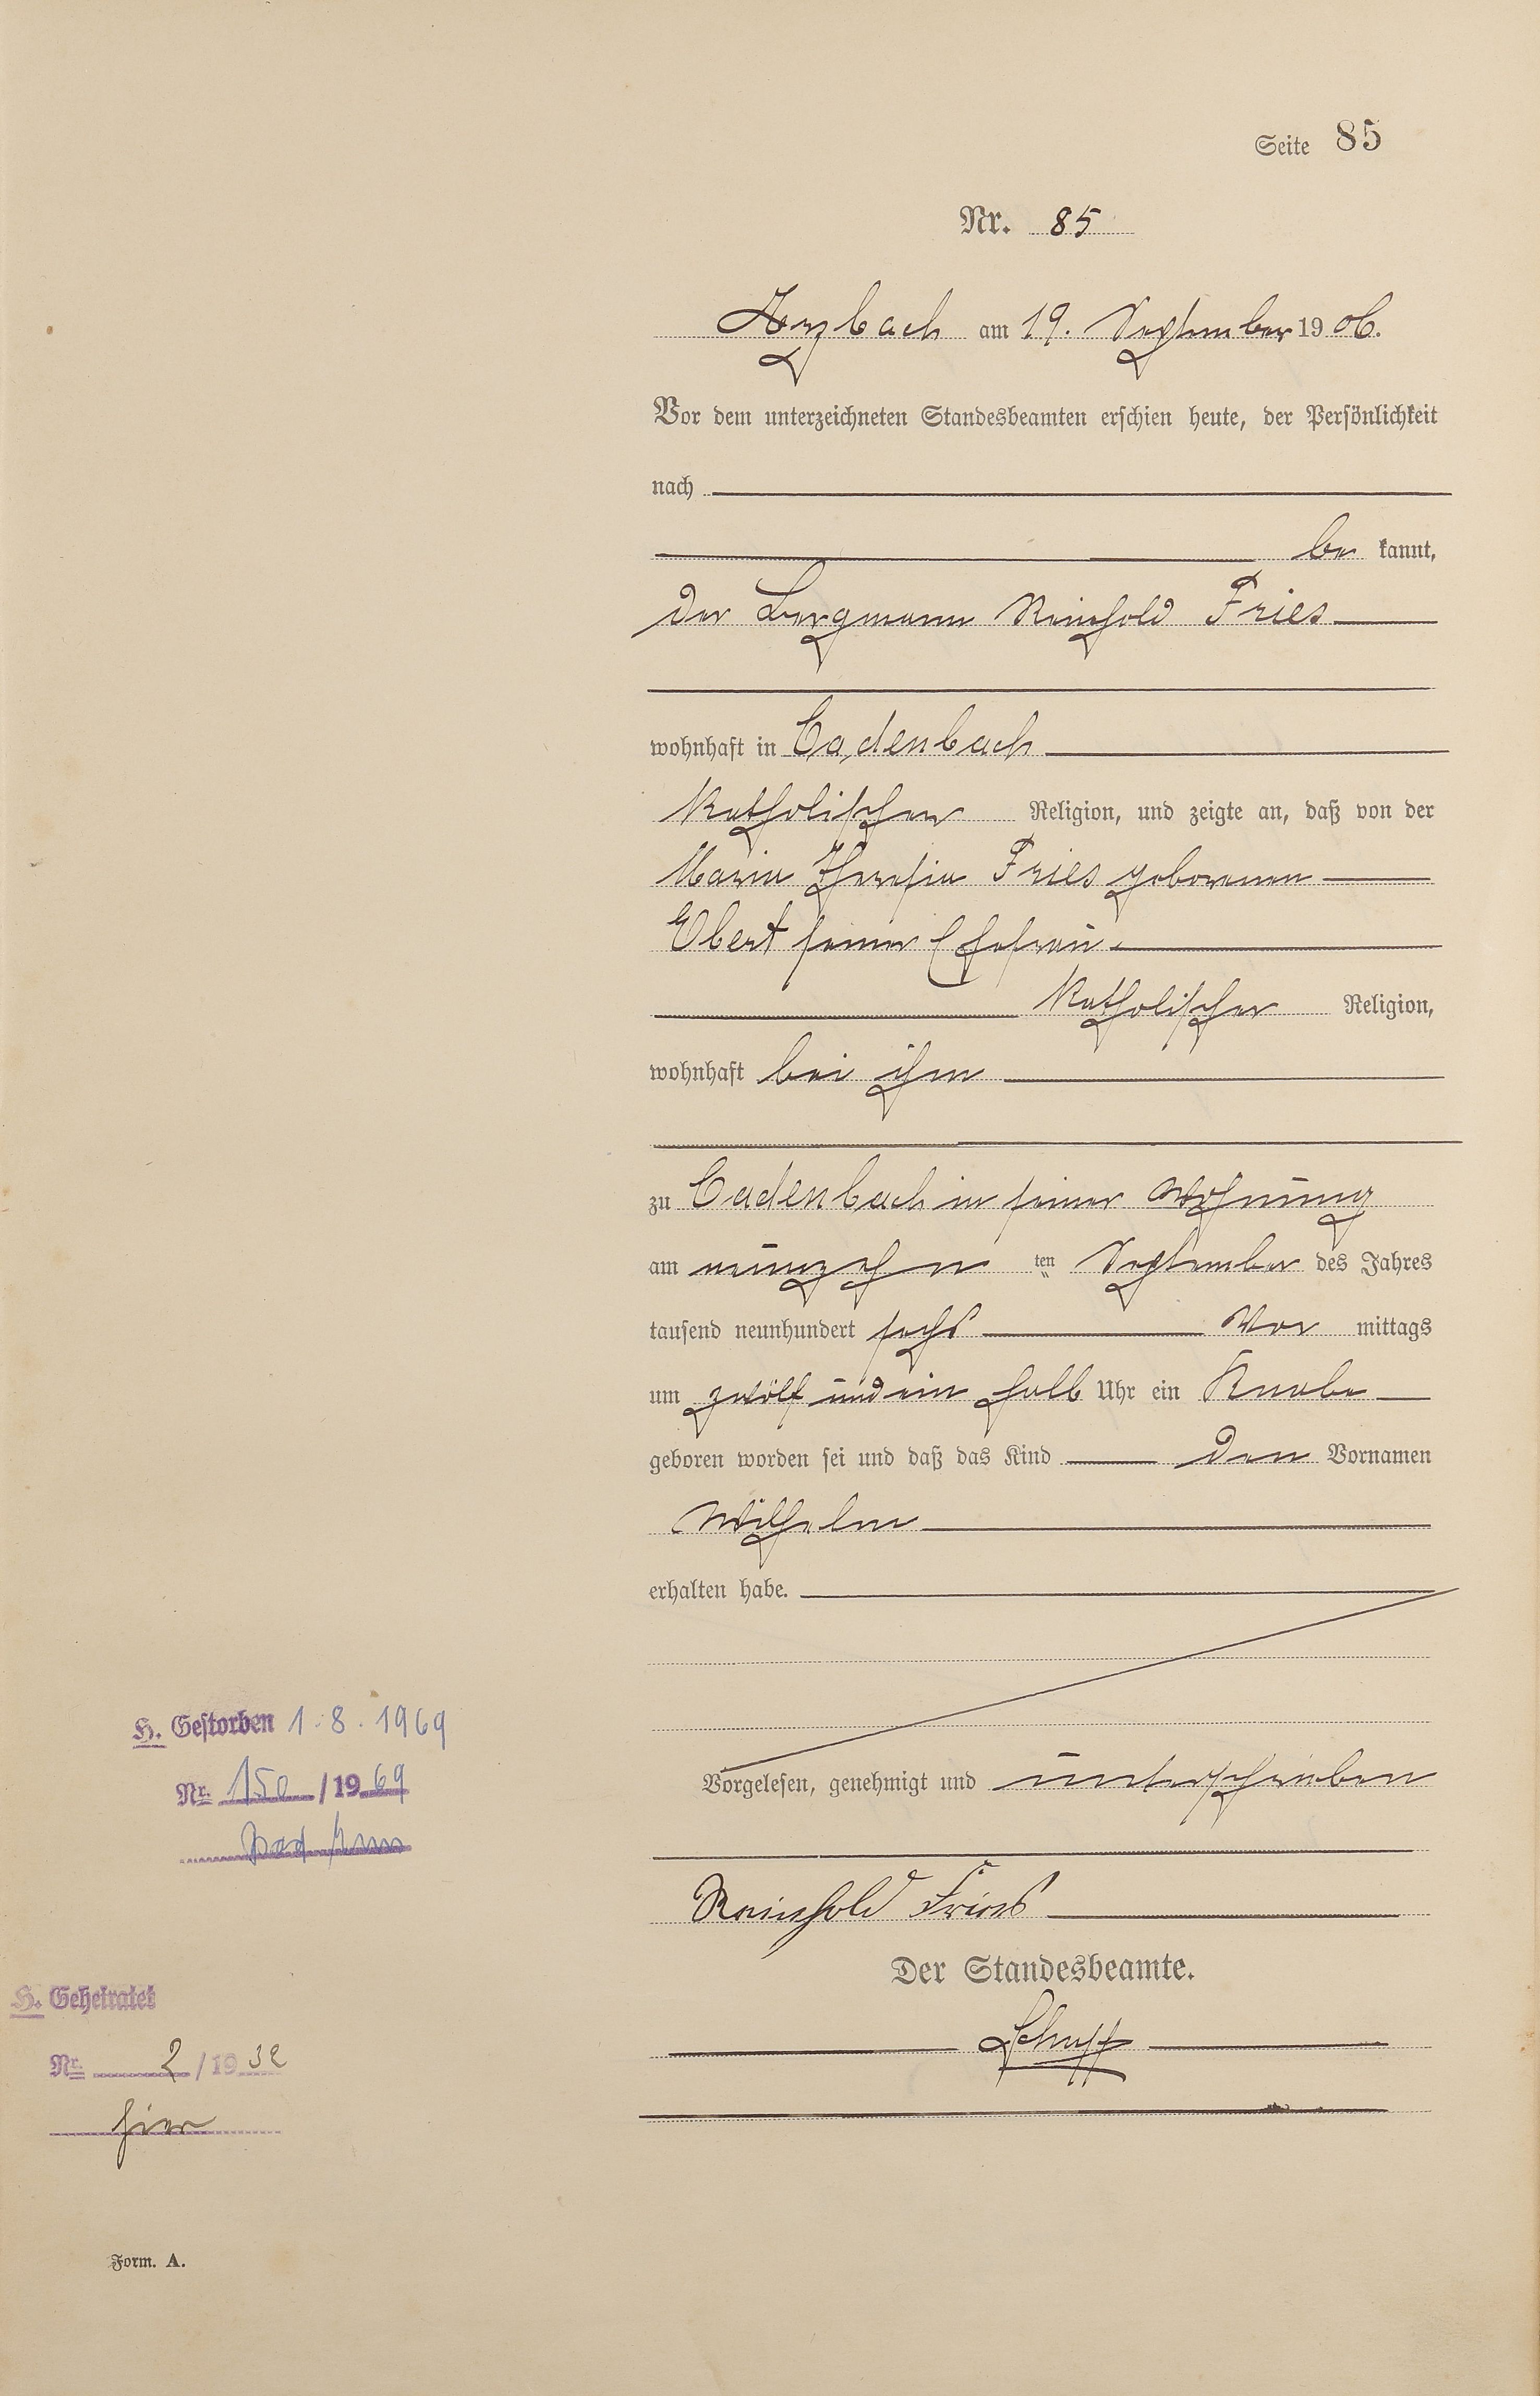 Seite 85
Nr. 85
Arzbach am 19. September 1906.
Vor dem unterzeichneten Standesbeamten erschien heute, der Persönlichkeit
nach
be kannt,
der Bergmann Reinhold Fries
wohnhaft in Cadenbach
katholischer Religion, und zeigte an, daß von der
Maria Theresia Fries geborenen
Ebert seiner Ehefrau
katholischer Religion,
wohnhaft bei ihm
zu Cadenbach in seiner Wohnung
am neunzehn ten September des Jahres
tausend neunhundert sechs Vor mittags
um zwölf und ein halb Uhr ein Knabe
geboren worden sei und daß das Kind den Vornamen
Wilhelm
erhalten habe.
Vorgelesen, genehmigt und unterschrieben
Reinhold Fries
Der Standesbeamte.
Schupp
H. Gestorben 1.8.1969
Nr. 150 / 1969
Bad Ems
H. Geheiratet
Nr. 2 / 1932
hier
Form. A.